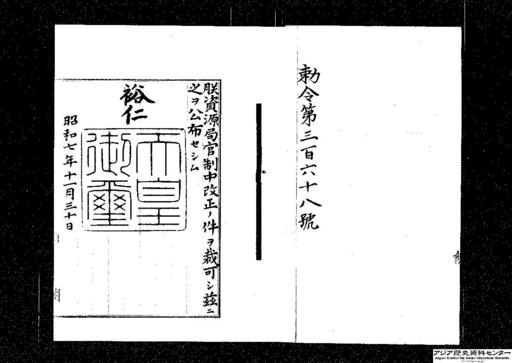 勅令第三百六十八號
朕資源局官制中改正ノ件ヲ裁可シ茲ニ
之ヲ公布セシム
裕仁
天皇
御璽
昭和七年十一月三十日
アジア歴史資料センター
Japan Center for Asian Historical Records